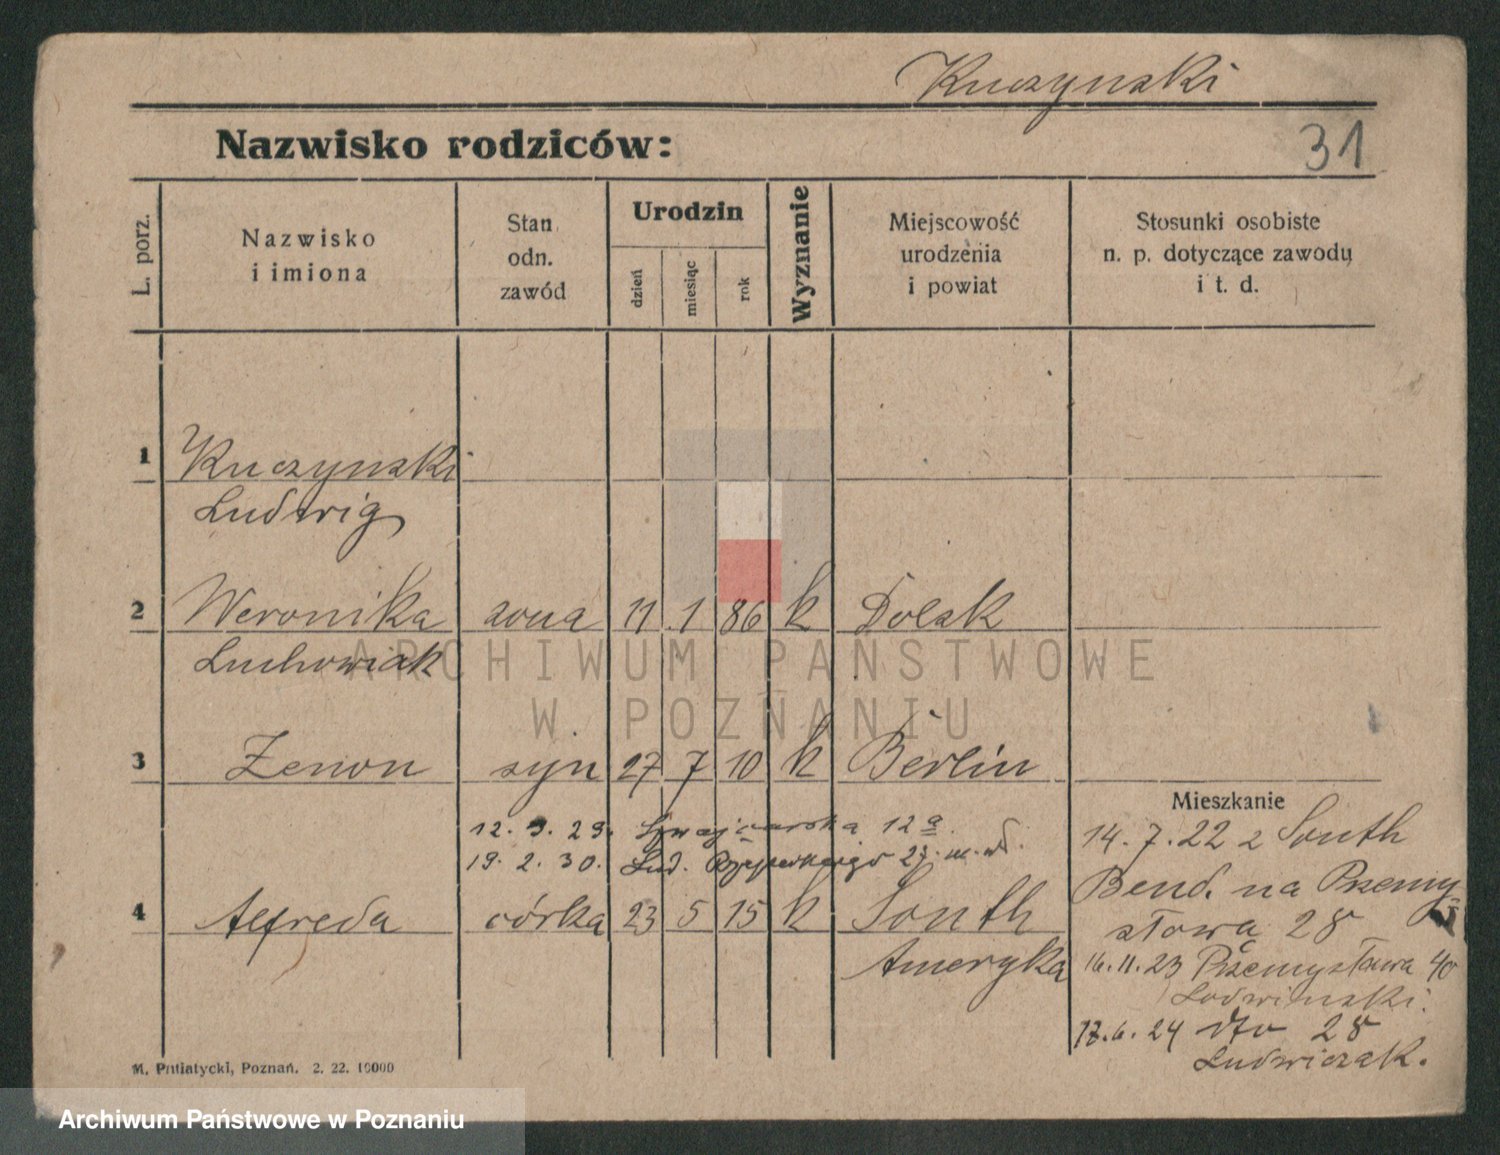 Kuczynski
Nazwisko rodziców:
31
L. porz.
Nazwisko
i imiona
Stan
odn.
zawód
Urodzin
dzień
miesiąc
rok
Wyznanie
Miejscowość
urodzenia
i powiat
Stosunki osobiste
n. p. dotyczące zawodu
i t. d.
1 Kuczynski
Ludwig
2 Weronika żona 11 1 86 k Dolsk
Luchowiak
ARCHIWUM PAŃSTWOWE
W POZNANIU
3 Zenon syn 27 7 10 k Berlin
12. 9. 29. 12a
19. 2. 30. Lud.
4 Alfreda córka 23 5 15 k South
Ameryka
Mieszkanie
14. 7. 22 z South
Bend. na Przemy-
słowa 28
16. 11. 23 Przemysłowa 40
Ludwinski.
17. 6. 24 dto 28
Ludwiczak.
M. Putiatycki, Poznań. 2. 22. 10000
Archiwum Państwowe w Poznaniu